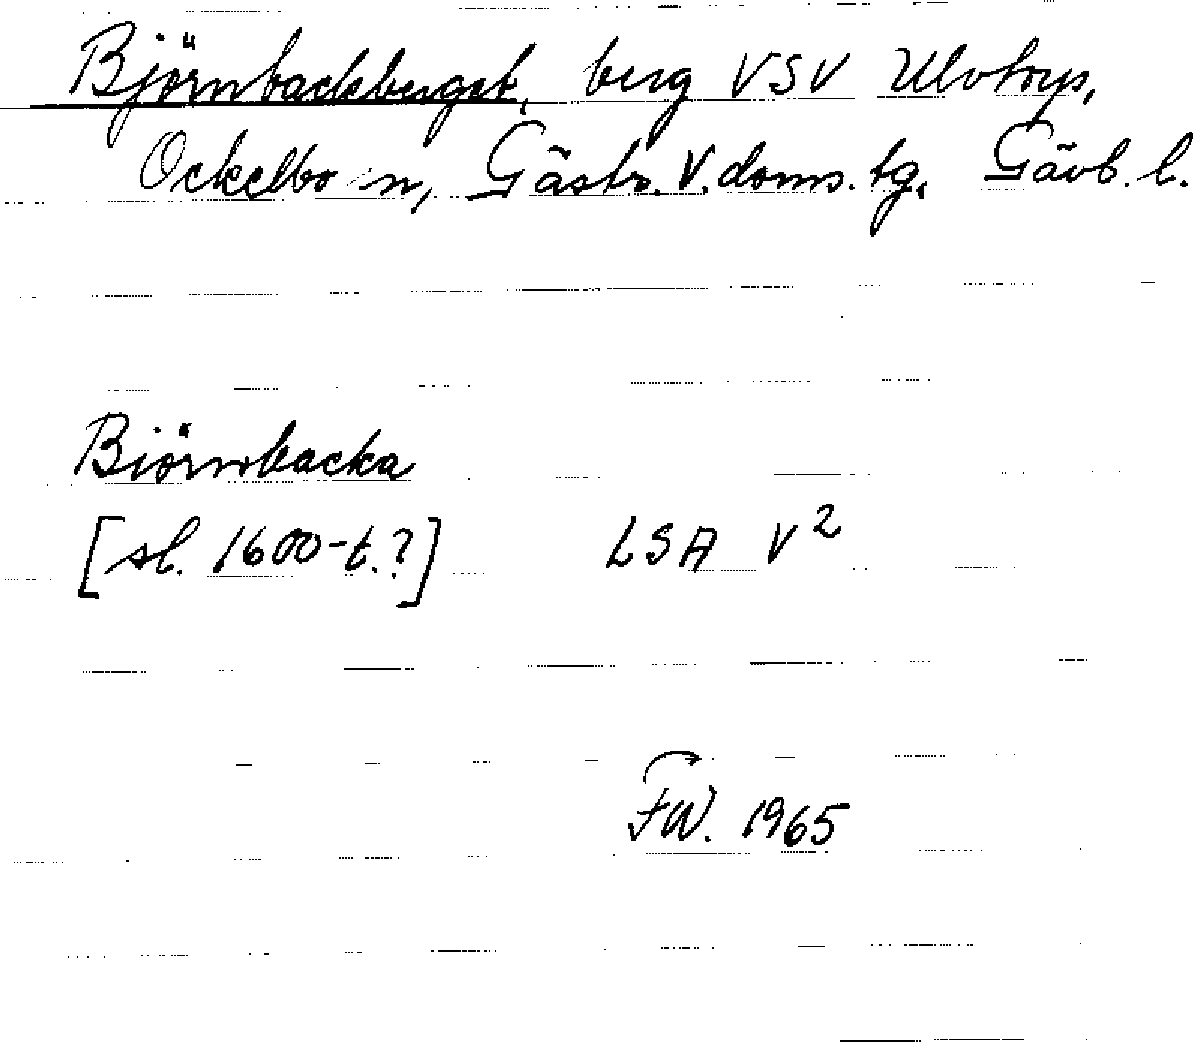 Björnbackberget, berg VSV Ulvtorp,
Ockelbo sn, Gästr. V. doms. tg, Gävb. l.
Biörnbacka
[sl. 1600-t.?] LSA V²
FW. 1965